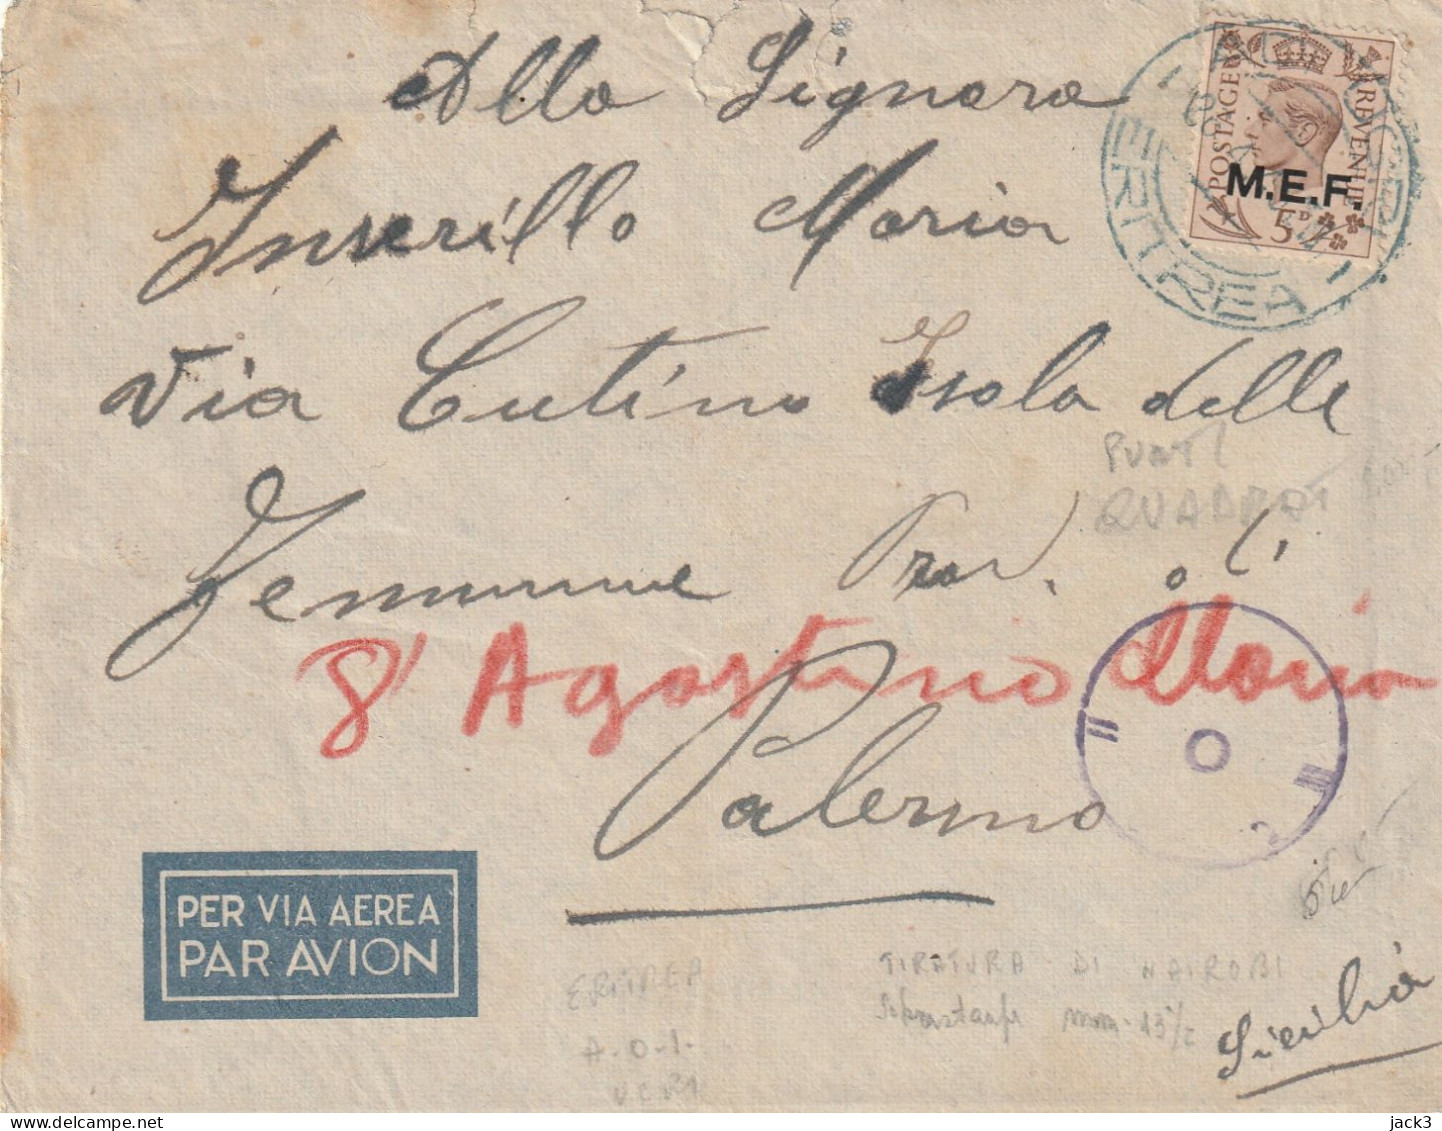 Alla Signora
POSTAGE REVENUE
M.E.F.
5D
ERITREA
Inserillo Maria
Via Cutino Isola delle
PUNTI
QUADRATI
Femmine Prov. di
S' Agostino Maria
O
Palermo
PER VIA AEREA
PAR AVION
ERITREA
TIRATURA DI NAIROBI
A.O.I.
mm. 13½
Sicilia
jack3